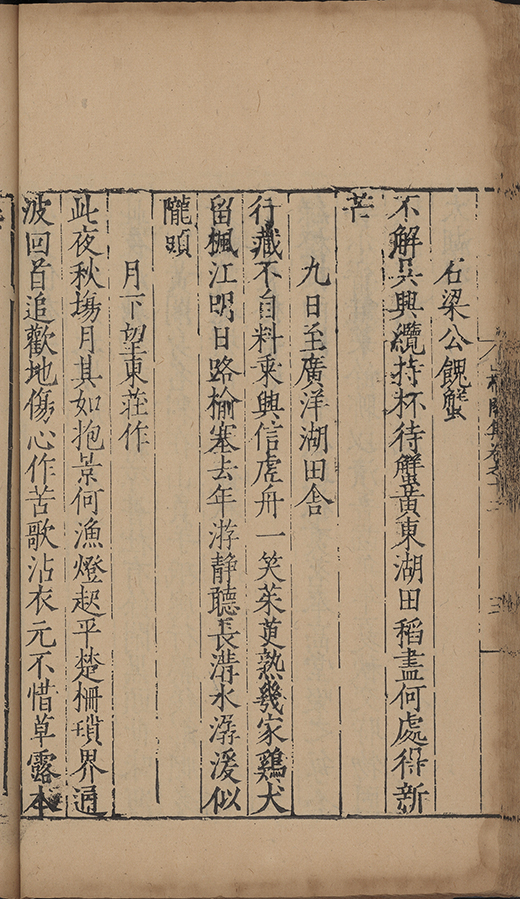 集卷之十三
三
石梁公餽蟹
不解吳興纜持杯待蟹黃東湖田稻盡何處得新
芒
九日至廣洋湖田舍
行藏不自料乘興信虛舟一笑茱萸熟幾家鷄犬
留楓江明日路榆塞去年游靜聽長溝水潺湲似
隴頭
月下望東莊作
此夜秋塲月其如抱景何漁燈起平楚柵瑣界通
波回首追歡地傷心作苦歌沾衣元不惜草露本